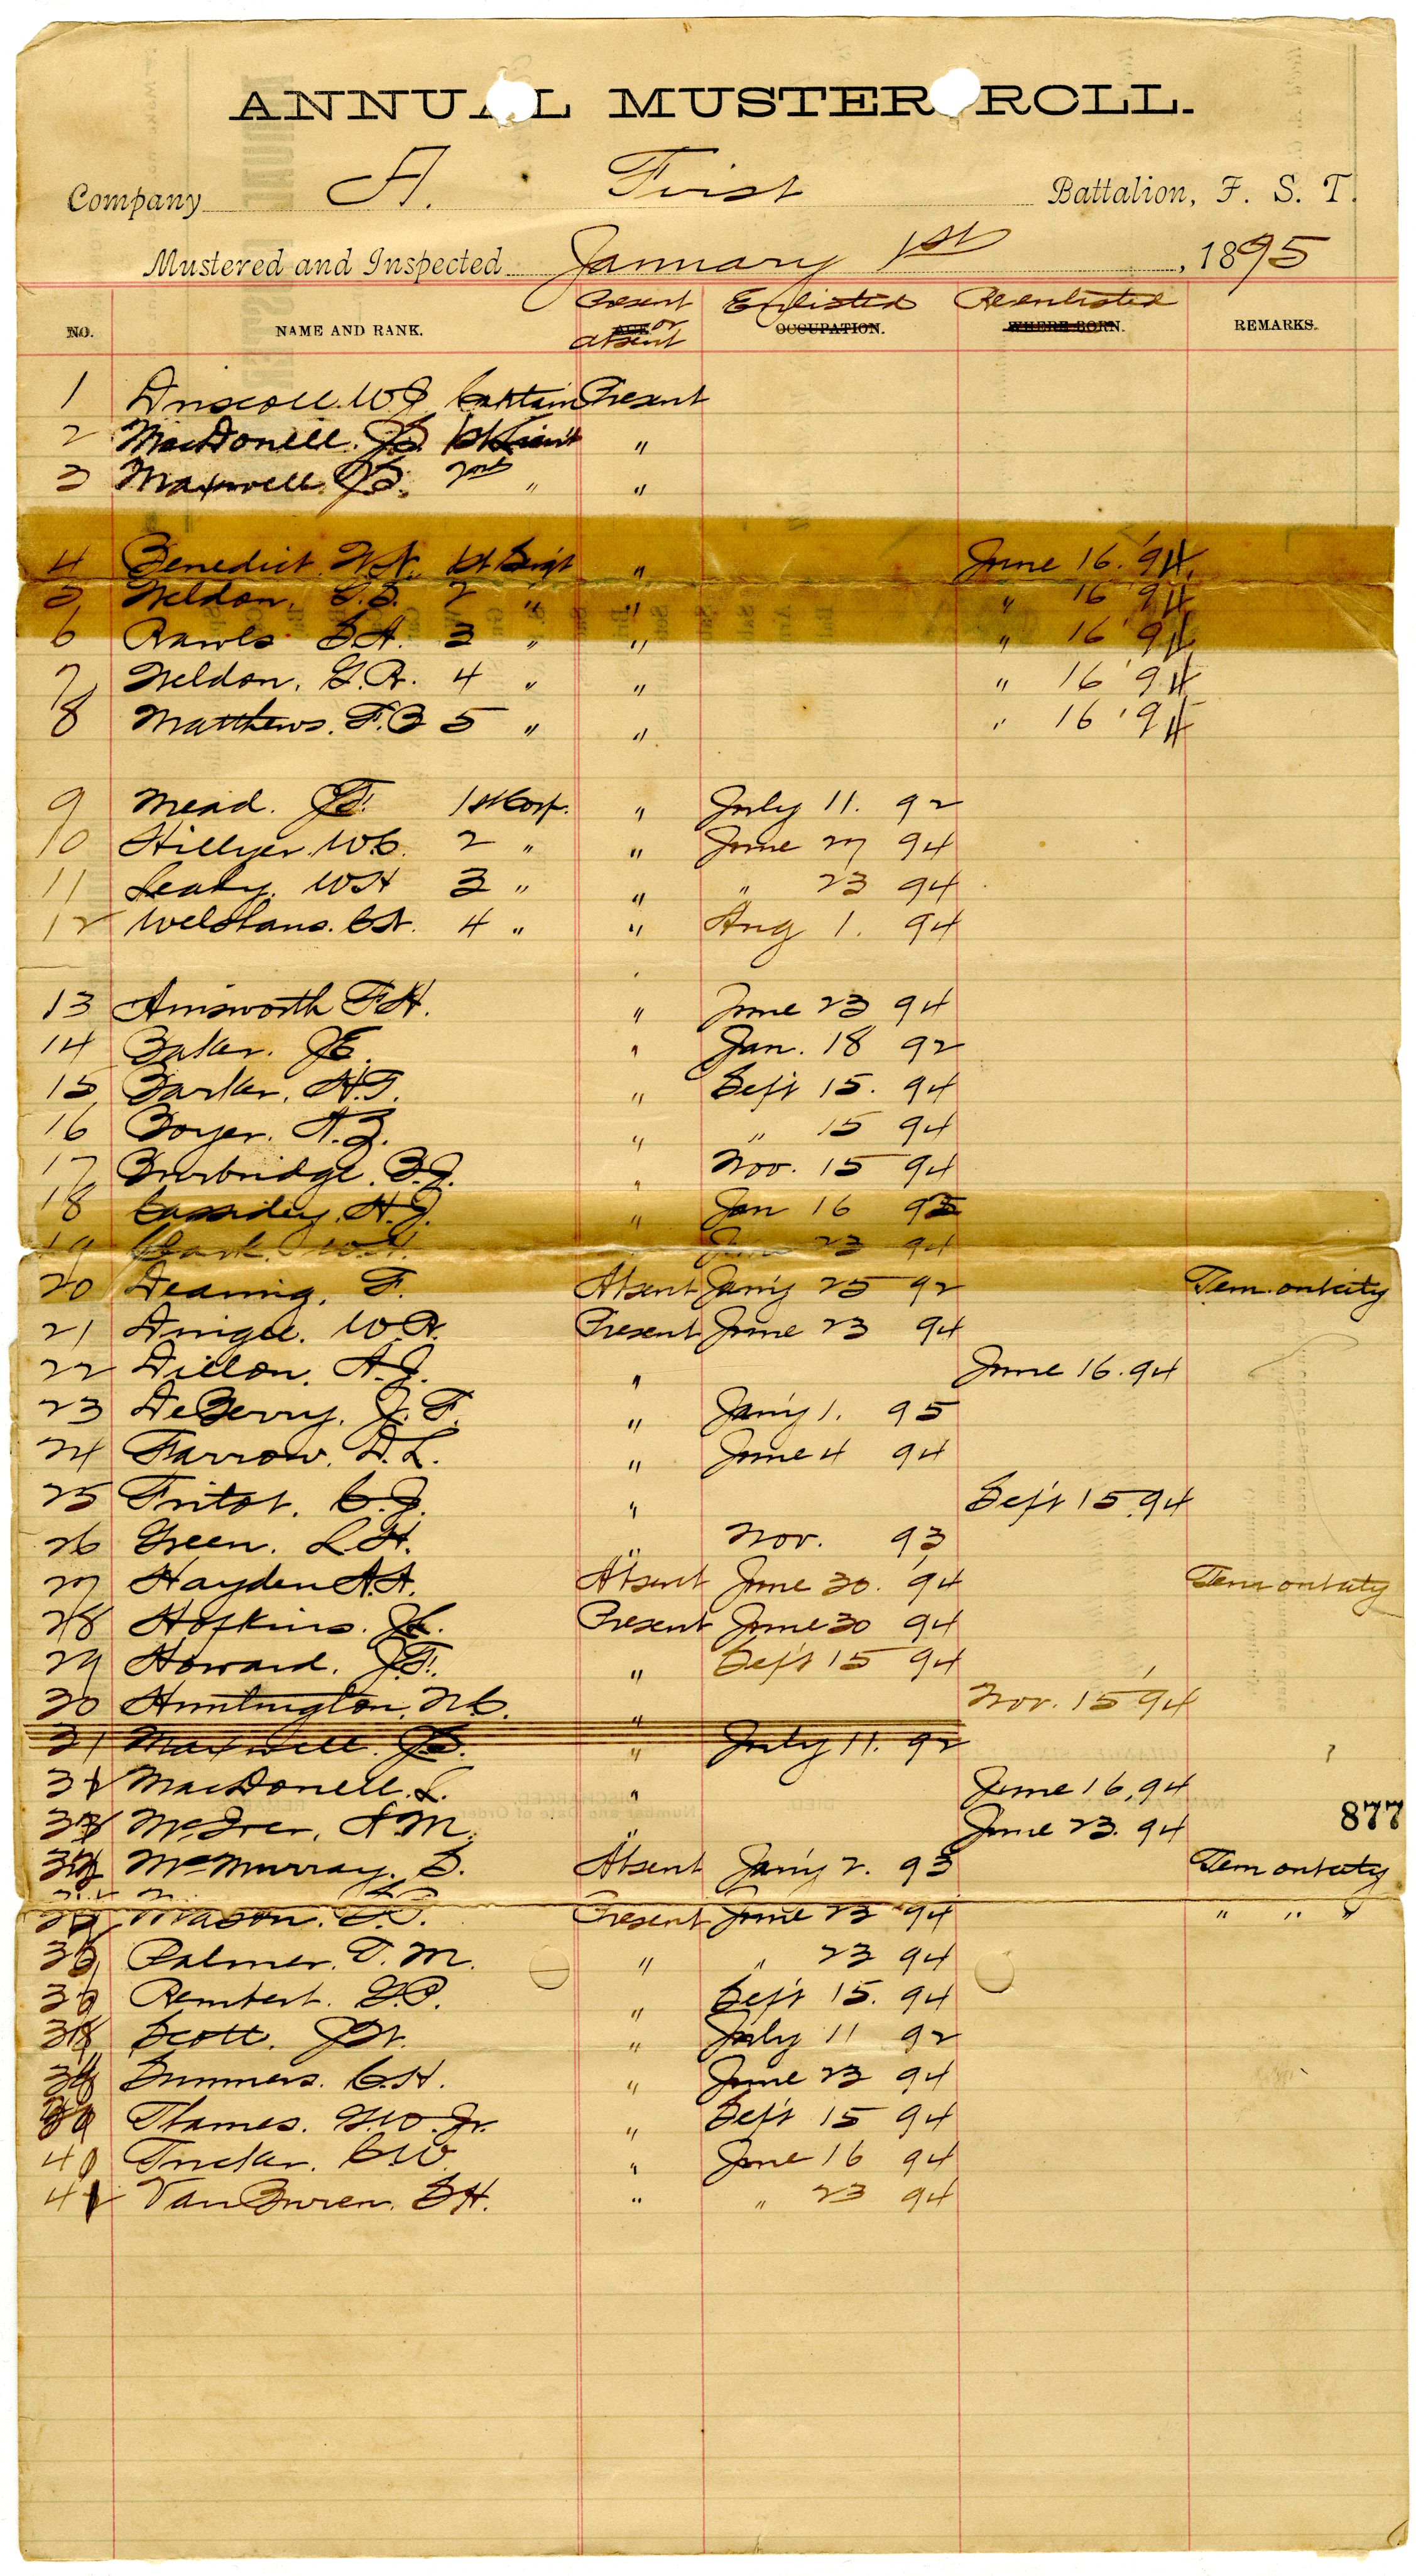 ANNUAL MUSTER ROLL.
Company A. First Battalion, F. S. T.
Mustered and Inspected January 1st, 1895
Present or Absent Enlisted Reenlisted
NO. NAME AND RANK. AGE OCCUPATION. WHERE BORN. REMARKS.
1 Driscoll. W J Captain Present
2 MacDonell. J.B. 1st Lieut "
3 Maxwell. J.S. 2nd " "
4 Benedict. 1st Serg't " June 16. '94
5 Weldon. 2 " " " 16 '94
6 Rawls 3 " " " 16 '94
7 Weldon. G.R. 4 " " " 16 '94
8 Matthews. F.B 5 " " " 16 '94
9 Mead. 1st Corp. " July 11. 92
10 Hillyer. W.C. 2 " " June 27 94
11 Leahy. W H 3 " " " 23 94
12 Welshans. 4 " " Aug 1. 94
13 Ainsworth F.H. " June 23 94
14 Baker. J E. " Jan. 18 92
15 Barker. H.T. " Sept 15. 94
16 Boyer. A.Z. " " 15 94
17 Burbridge. B.J. " Nov. 15 94
18 Cassidey. H.J. " Jan 16 95
19 Clark. W.H. " June 23 94
20 Deaming. F. Absent Jan'y 25 92 Tem. out city
21 Dingee. W.R. Present June 23 94
22 Dillon. A.J. " June 16. 94
23 DeBerry. J. F. " Jan'y 1. 95
24 Farrow. D.L. " June 4 94
25 Fritot. C.J. " Sept 15. 94
26 Green. L H. " Nov. 93
27 Hayden A.A. Absent June 30. '94 Tem out city
28 Hopkins. Present June 30 94
29 Howard. J.F. " Sept 15 94
30 Huntington. N.C. " Nov. 15 '94
31 Maxwell. J.S. " July 11. 92
32 MacDonell. L. " June 16, 94
33 McIver. A M. " June 23. 94
877
McMurray. S. Absent Jan'y 2. 93 Tem out city
Mason. Present June 23 94 " " "
Palmer. T. M. " " 23 94
Rembert. G.P. " Sept 15. 94
38 Scott. " July 11 92
Summers. C.H. " June 23 94
Thames. G.W. Jr. " Sept 15 94
40 Tucker. C.W. " June 16 94
41 Van Buren. S H. " " 23 94